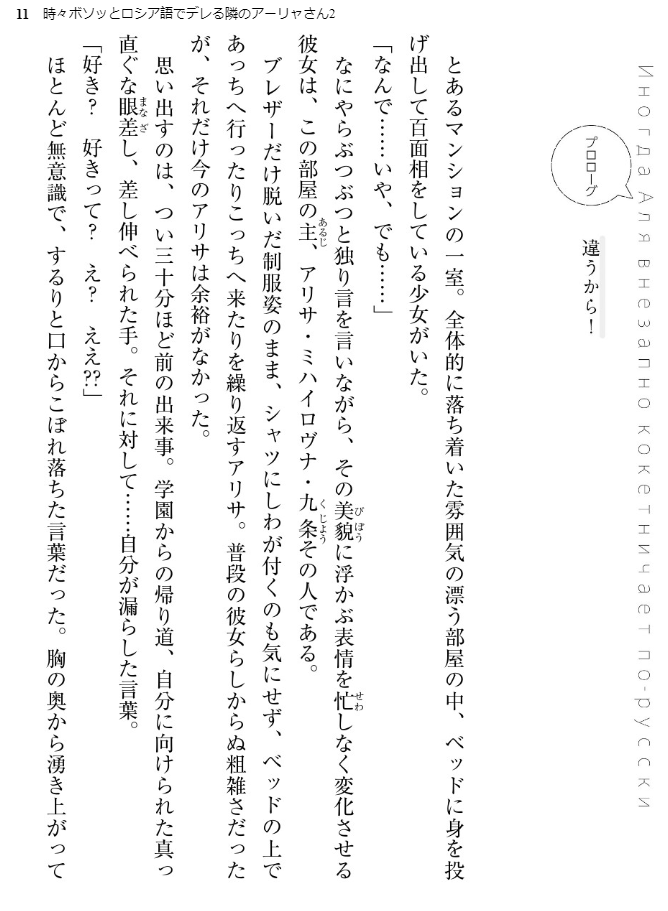 11　時々ボソッとロシア語でデレる隣のアーリャさん2
Иногда Аля внезапно кокетничает по-русски
プロローグ
違うから！
とあるマンションの一室。全体的に落ち着いた雰囲気の漂う部屋の中、ベッドに身を投
げ出して百面相をしている少女がいた。
「なんで……いや、でも……」
なにやらぶつぶつと独り言を言いながら、その美貌に浮かぶ表情を忙しなく変化させる
彼女は、この部屋の主、アリサ・ミハイロヴナ・九条その人である。
ブレザーだけ脱いだ制服姿のまま、シャツにしわが付くのも気にせず、ベッドの上で
あっちへ行ったりこっちへ来たりを繰り返すアリサ。普段の彼女らしからぬ粗雑さだった
が、それだけ今のアリサは余裕がなかった。
思い出すのは、つい三十分ほど前の出来事。学園からの帰り道、自分に向けられた真っ
直ぐな眼差し、差し伸べられた手。それに対して……自分が漏らした言葉。
「好き？　好きって？　え？　ええ??」
ほとんど無意識で、するりと口からこぼれ落ちた言葉だった。胸の奥から湧き上がって